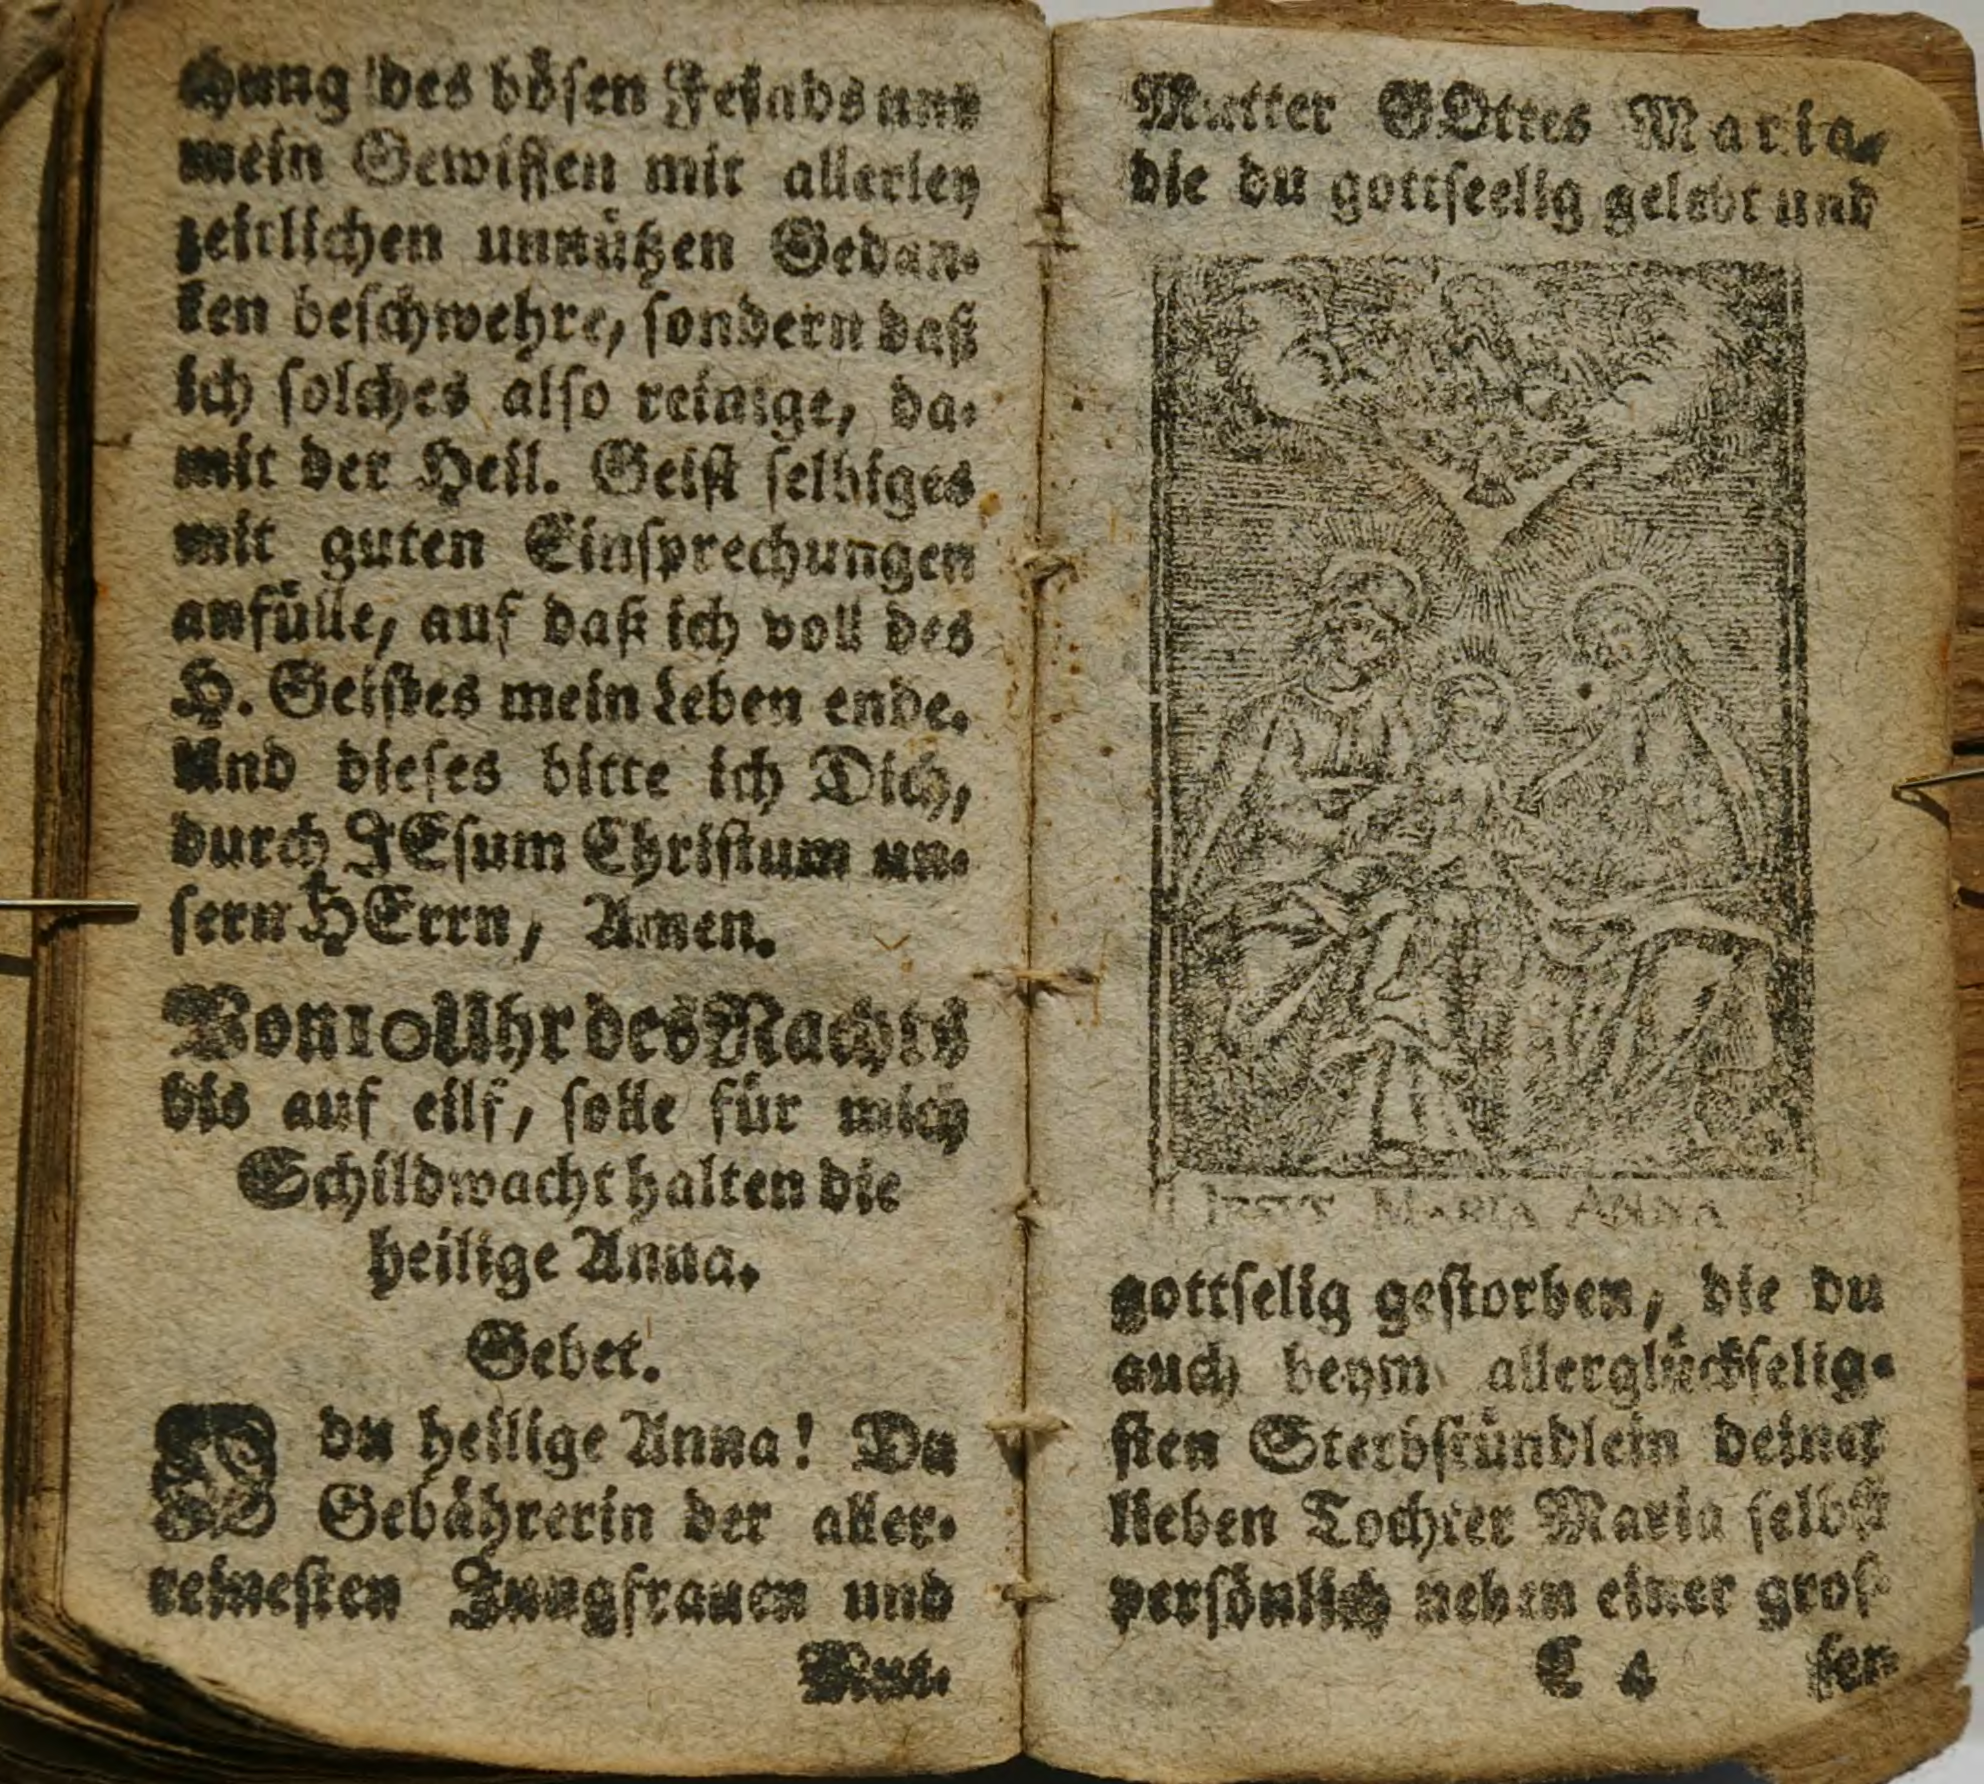 chung des bösen Feinds und
mein Gewissen mit allerley
zeitlichen unnützen Gedan-
ken beschwehre, sondern daß
ich solches also reinige, da-
mit der Heil. Geist selbiges
mit guten Einsprechungen
anfülle, auf daß ich voll des
H. Geistes mein Leben ende.
Und dieses bitte ich Dich,
durch JEsum Christum un-
sern HErrn, Amen.
Von 10 Uhr des Nachts
bis auf eilf, solle für mich
Schildwacht halten die
heilige Anna.
Gebet.
O du heilige Anna! Du
Gebährerin der aller-
reinesten Jungfrauen und
Mut-
Mutter GOttes Maria,
die du gottseelig gelebt und
JESUS MARIA ANNA
gottselig gestorben, die du
auch beym allerglückselig-
sten Sterbstündlein deiner
lieben Tochter Maria selbst
persönlich neben einer gros-
C 4 sen